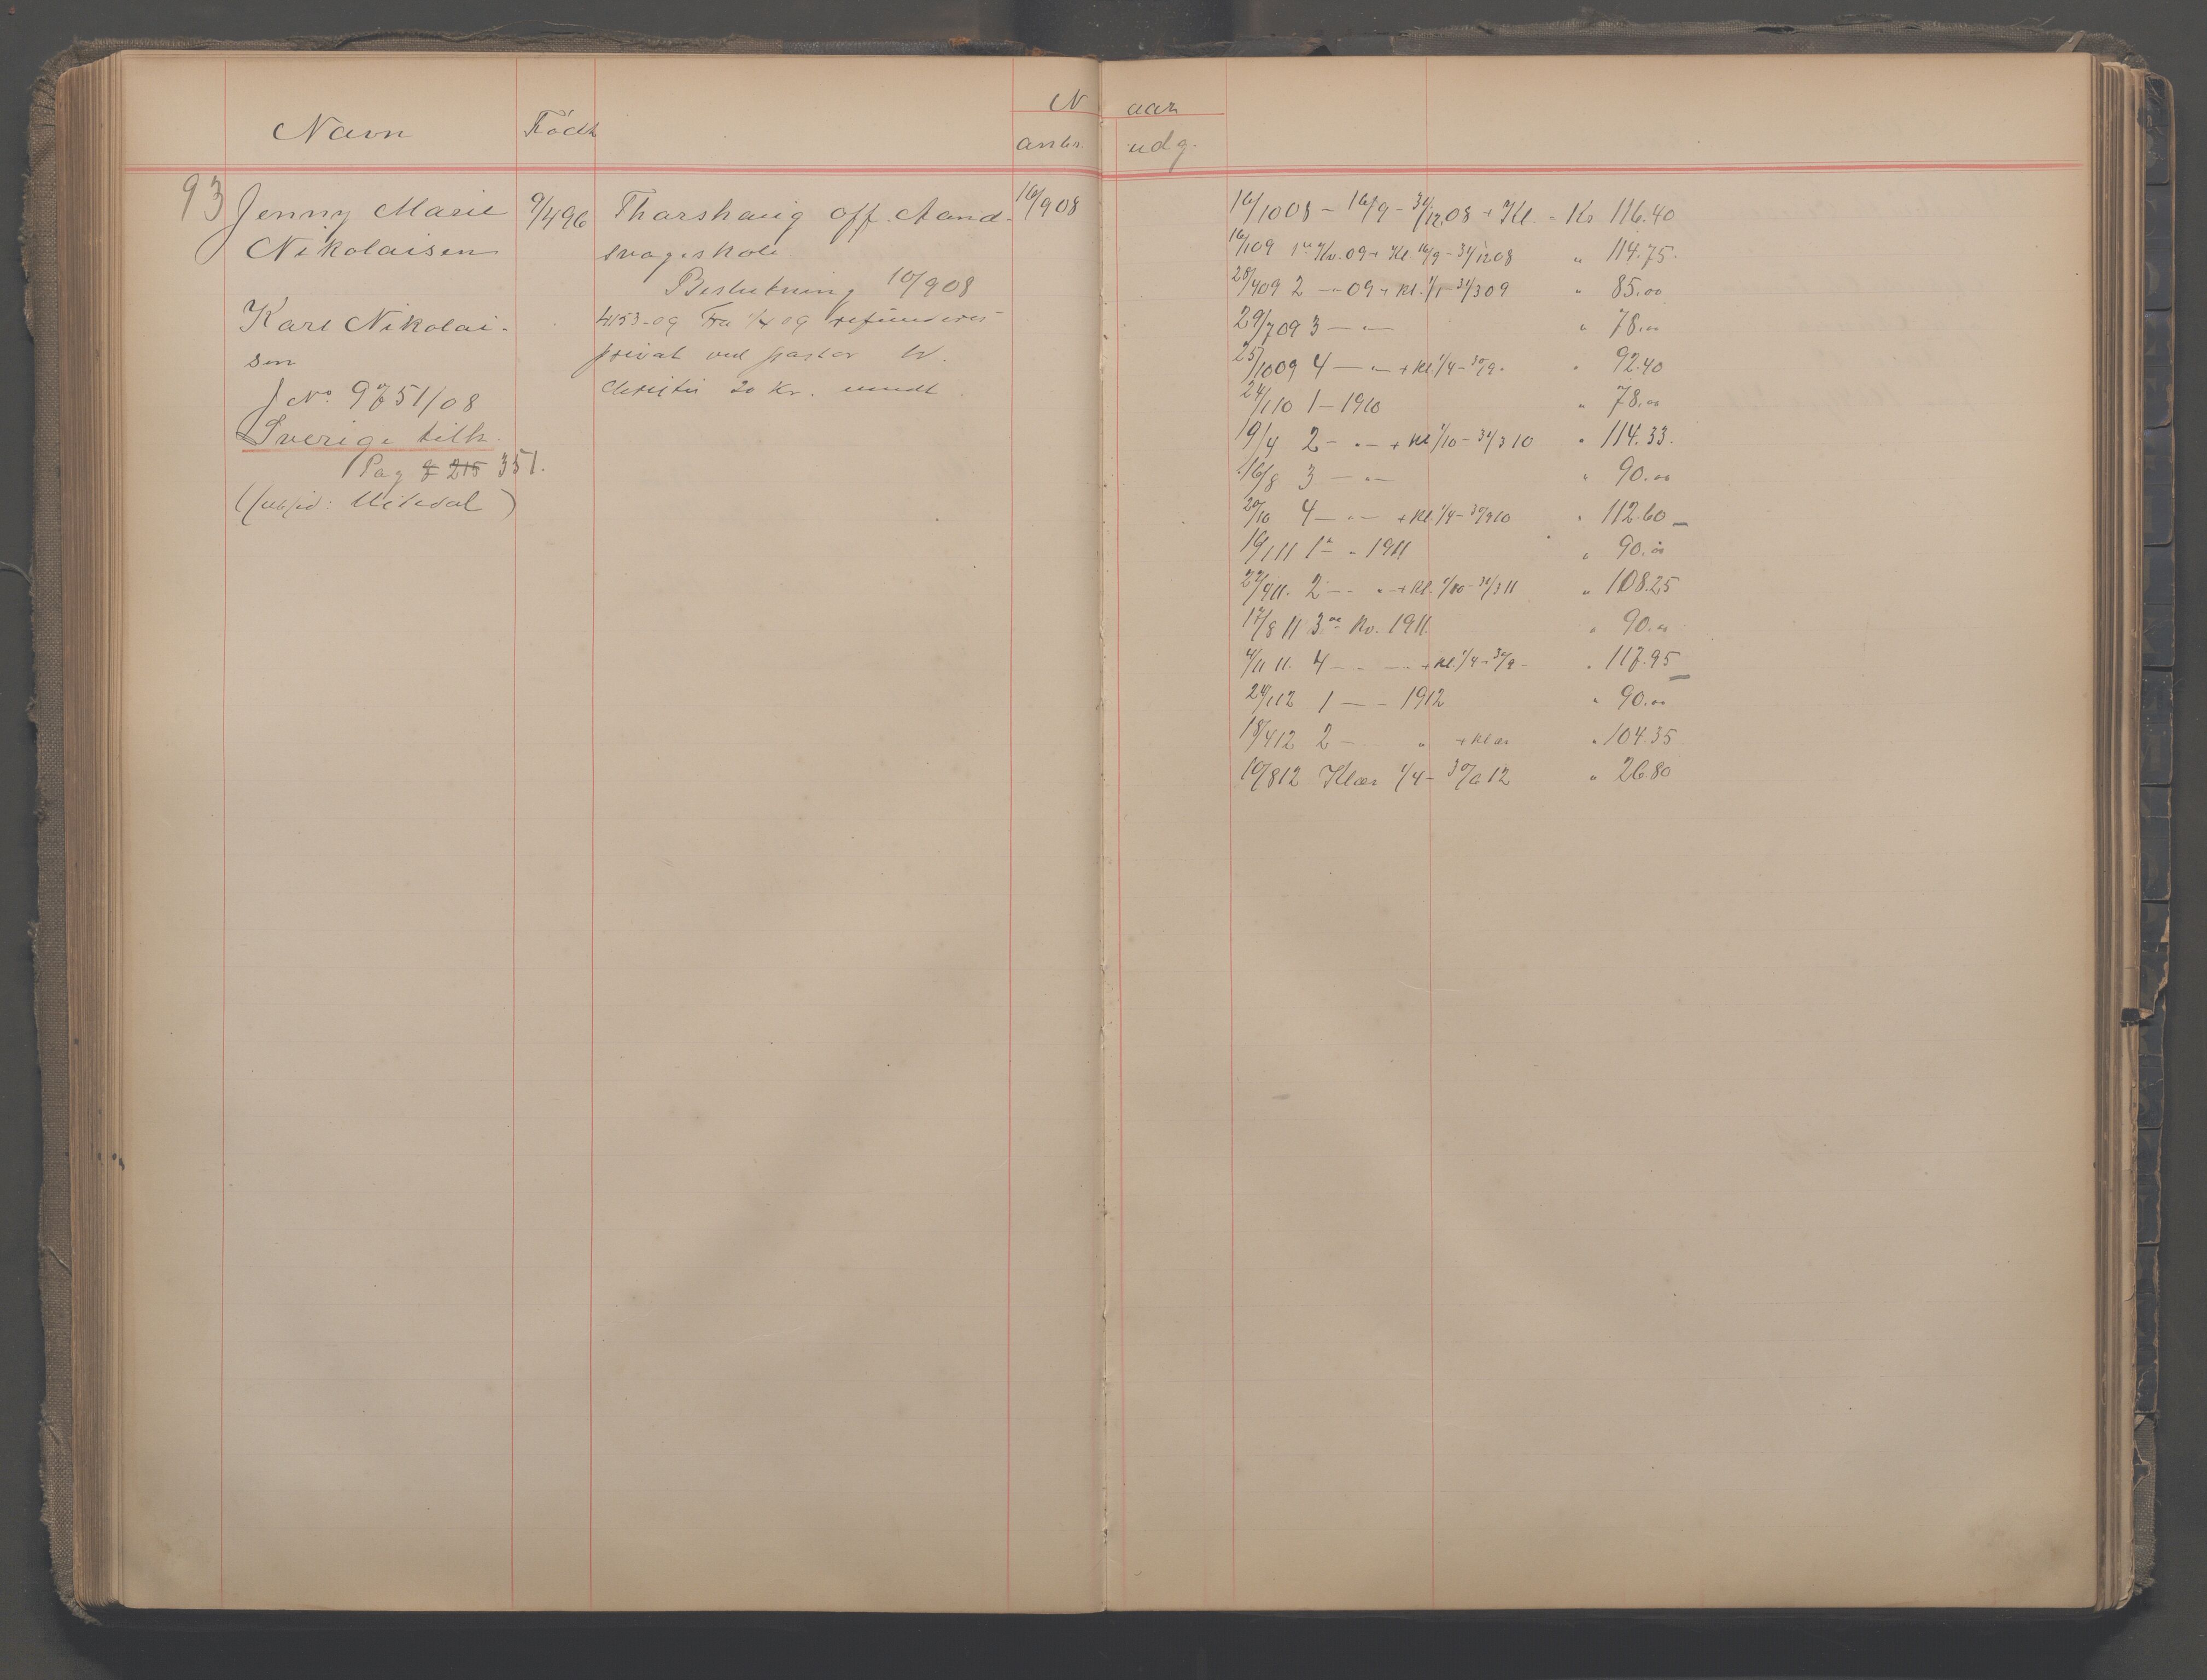 Navn Født N aar
anbr. udg.
93 Jenny Marie 9/4 96 Tharshaug off. Aand- 16/9 08
Nikolaisen svageskole
Beslutning 10/9 08
Karl Nikolai- 4153-09 Fra 1/4 09 refunderes
sen privat ved pastor W.
J No. 9751/08 Christie 20 Kr. mndt.
Sverige tilh.
Pag 8 215 351.
16/10 08 - 16/9 - 31/12 08 + Kl. - Kr 116.40
16/1 09 1ste Kv. 09 + Kl. 16/9 - 31/12 08 " 114.75.
28/4 09 2 - " 09 + Kl. 1/1 - 31/3 09 " 85.00
29/7 09 3 — " — " 78.00
25/10 09 4 — " — + Kl. 1/4 - 30/9. " 92.40
24/1 10 1 - 1910 " 78.00
19/4 2 - " — + Kl 1/10 - 31/3 10 " 114.33.
16/8 3 — " — " 90.00
20/10 4 — " — + Kl. 1/4 - 30/9 10 " 112.60
19/1 11 1ste " 1911 " 90.00
22/4 11. 2 — " — + Kl. 1/10 - 31/3 11 " 108.25
17/8 11 3die Kv. 1911. " 90.00
4/11 11. 4 — " — + Kl. 1/4 - 30/9 - " 117.95
24/1 12 1 — - 1912 " 90.00
18/4 12 2 — " + Klær " 104.35
10/8 12 Klær 1/4 - 30/6 12 " 26.80